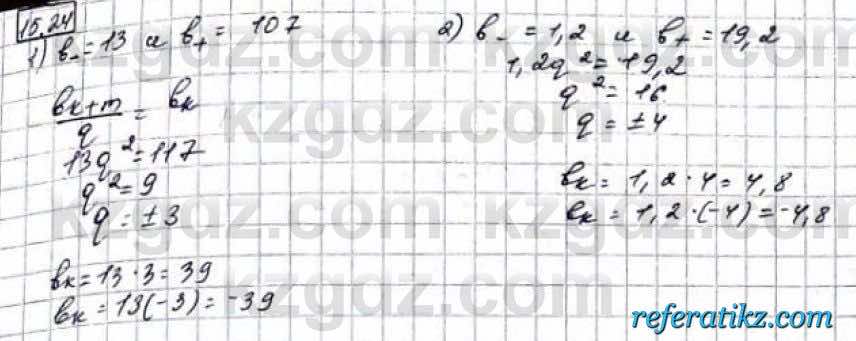 15.24
1) b₋ = 13 и b₊ = 107
bк+m / q = bк
13q² = 117
q² = 9
q = ±3
bк = 13 · 3 = 39
bк = 13(-3) = -39
2) b₋ = 1,2 и b₊ = 19,2
1,2q² = 19,2
q² = 16
q = ±4
bк = 1,2 · 4 = 4,8
bк = 1,2 · (-4) = -4,8
kzgdz.com
referatikz.com